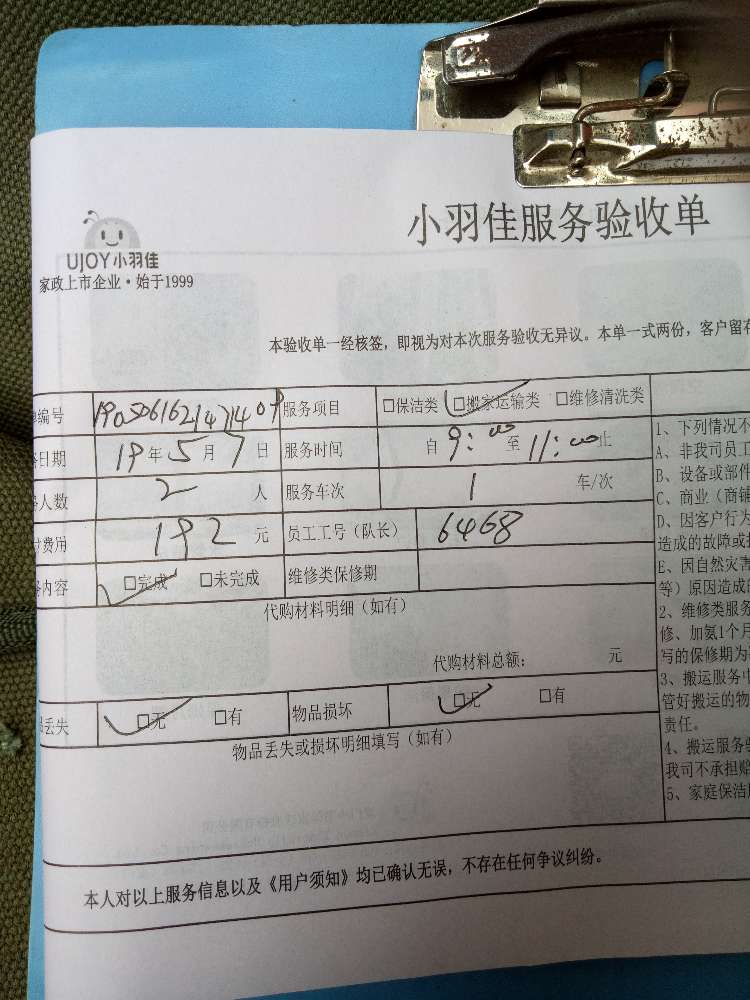 小羽佳服务验收单
UJOY小羽佳
家政上市企业·始于1999
本验收单一经核签，即视为对本次服务验收无异议。本单一式两份，客户留存
编号 服务项目 □保洁类 □搬家运输类 □维修清洗类
日期 19年5月7日 服务时间 自9:00至11:00止
人数 2人 服务车次 1 车/次
费用 192元 员工工号（队长） 6468
内容 □完成 □未完成 维修类保修期
代购材料明细（如有）
代购材料总额： 元
丢失 □无 □有 物品损坏 □无 □有
物品丢失或损坏明细填写（如有）
1、下列情况不
A、非我司员工
B、设备或部件
C、商业（商铺
D、因客户行为
造成的故障或损
E、因自然灾害
等）原因造成的
2、维修类服务
修、加氨1个月
写的保修期为
3、搬运服务中
管好搬运的物
责任。
4、搬运服务
我司不承担赔
5、家庭保洁
本人对以上服务信息以及《用户须知》均已确认无误，不存在任何争议纠纷。